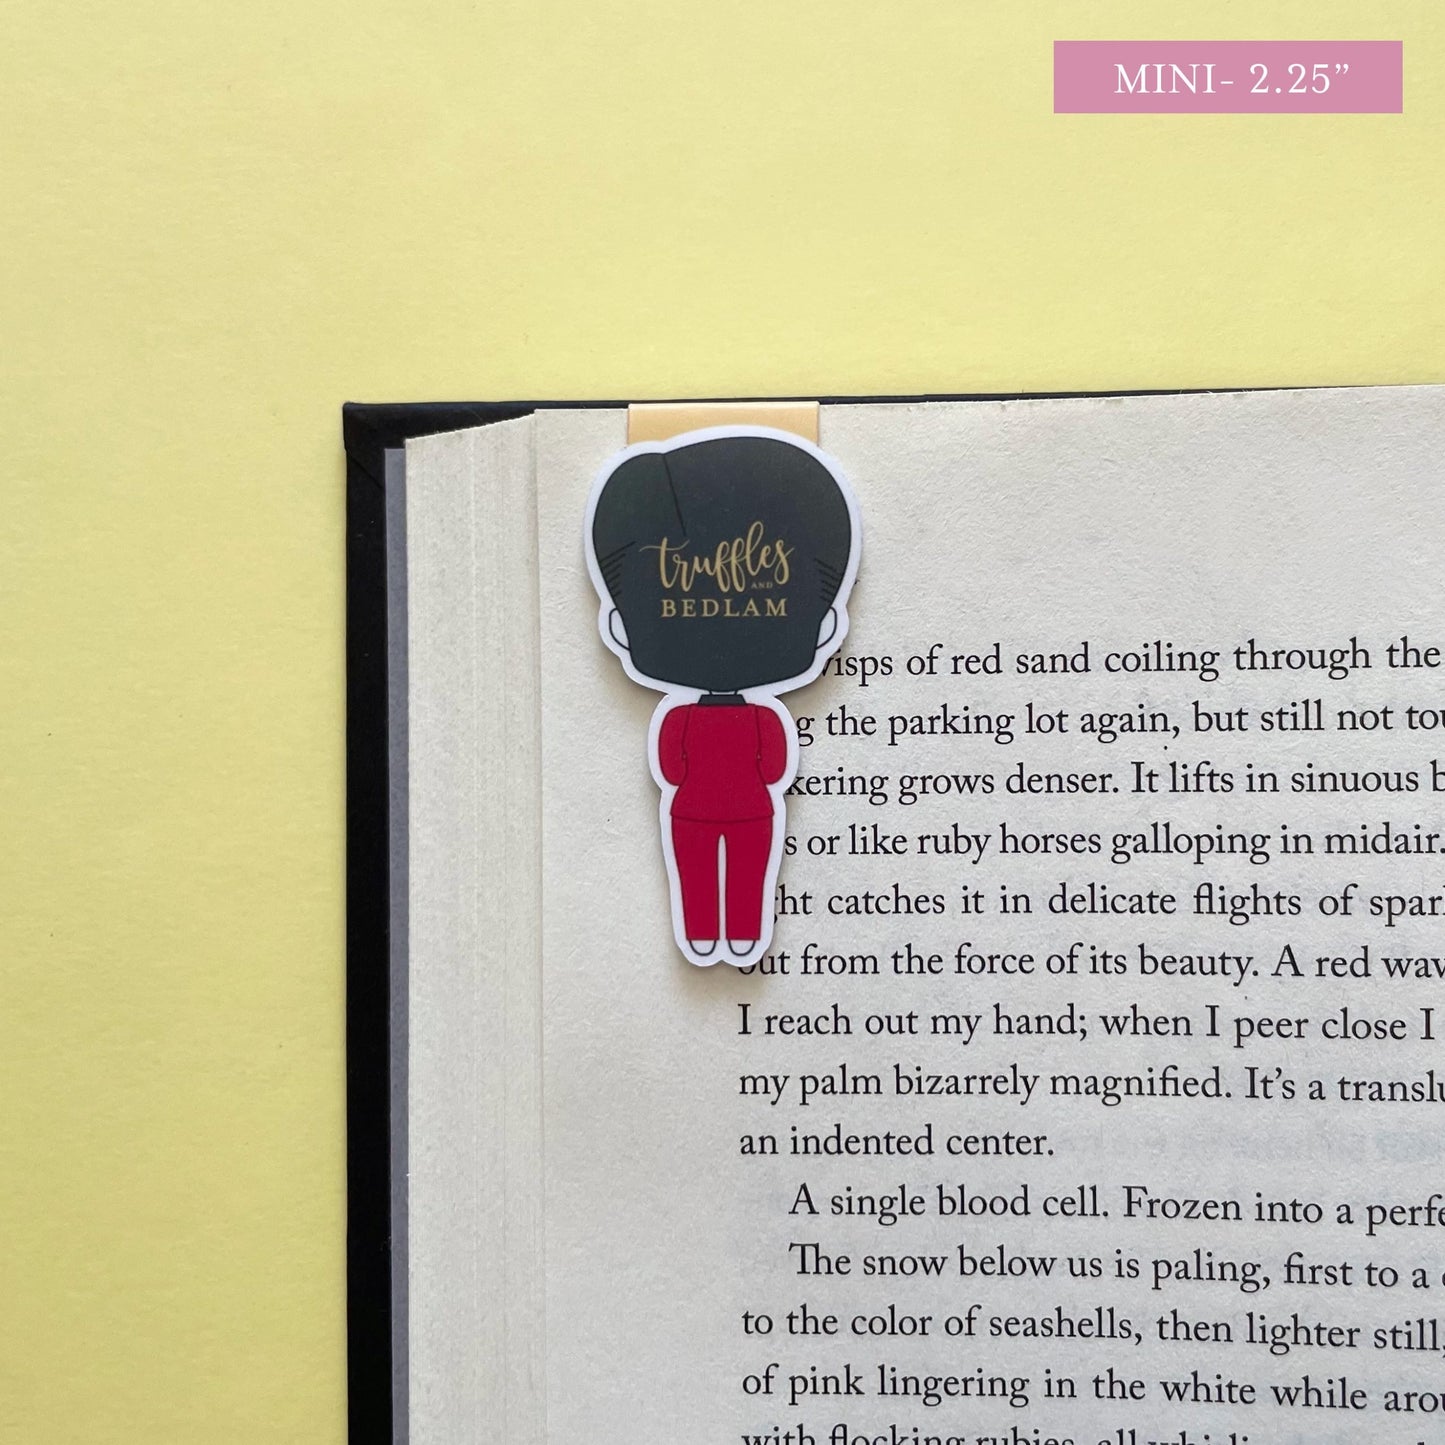 MINI- 2.25”
truffles
AND
BEDLAM
of red sand coiling through the
the parking lot again, but still not
grows denser. It lifts in sinuous
or like ruby horses galloping in midair.
catches it in delicate flights of
from the force of its beauty. A red
I reach out my hand; when I peer close I
my palm bizarrely magnified. It’s a
an indented center.
A single blood cell. Frozen into a
The snow below us is paling, first to a
to the color of seashells, then lighter still,
of pink lingering in the white while